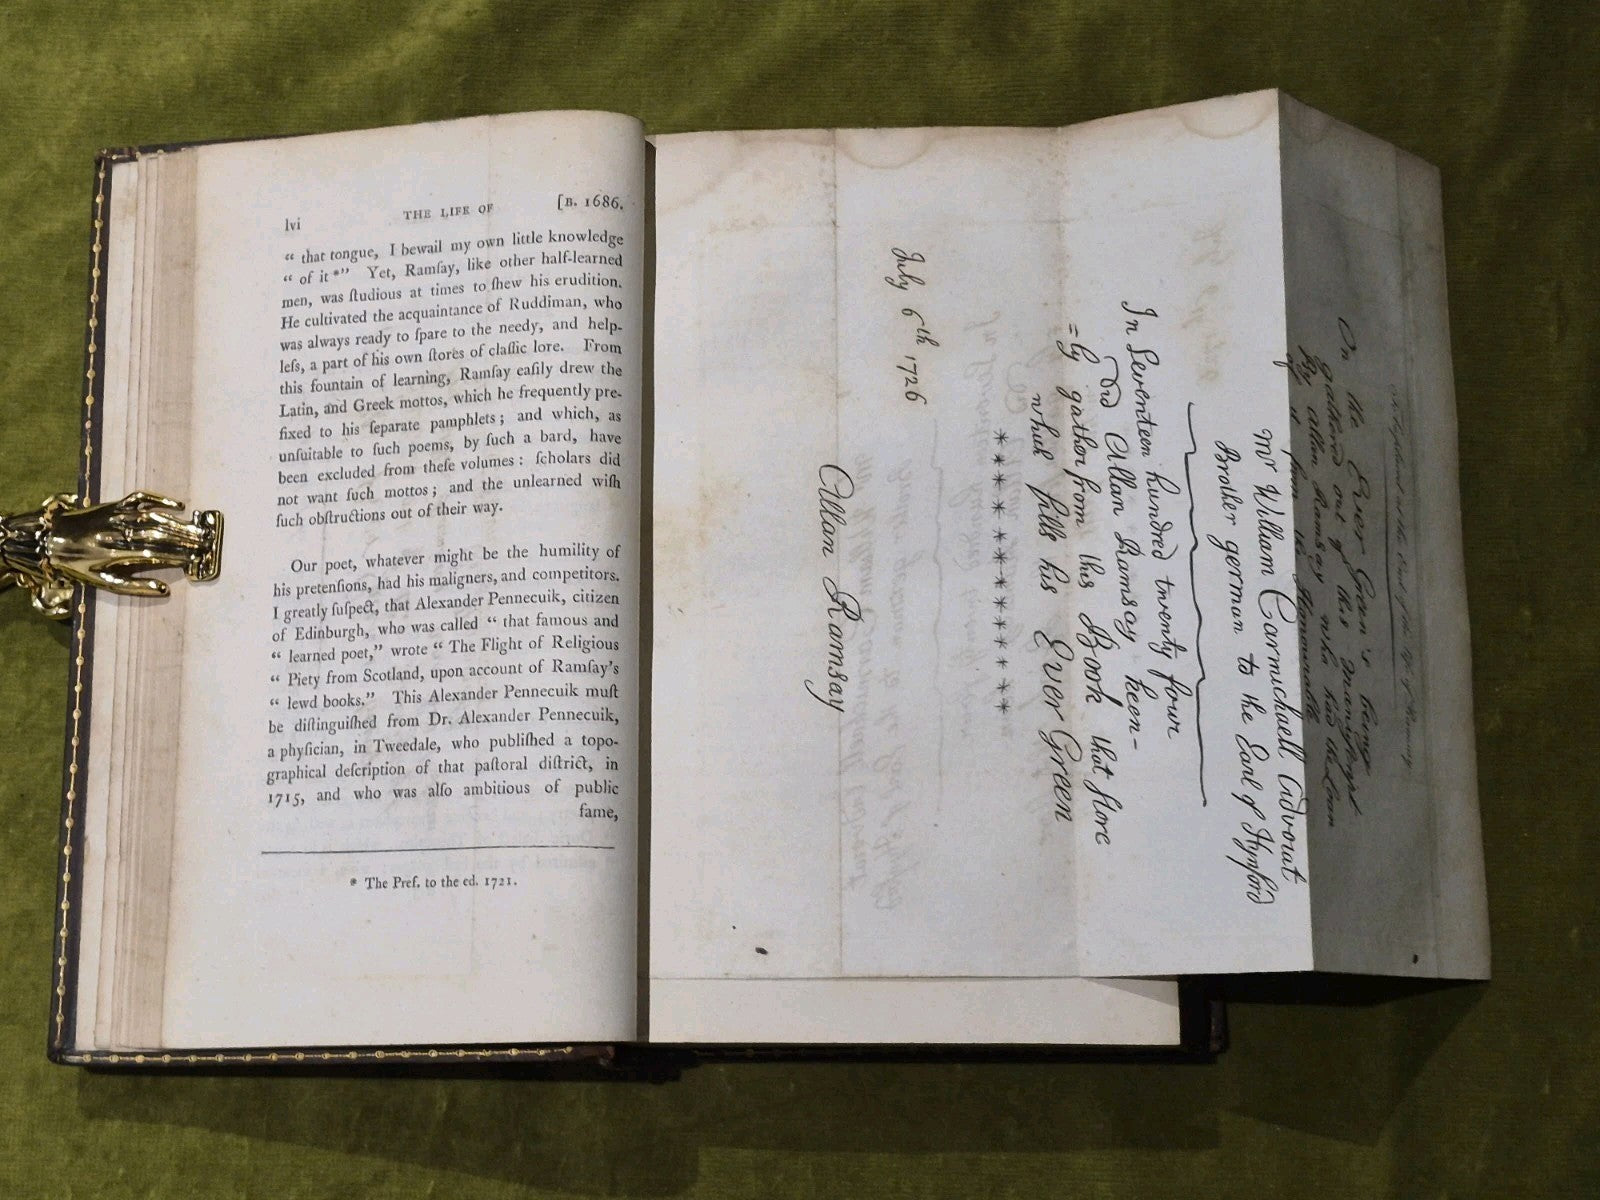 lvi THE LIFE OF [B. 1686.
“ that tongue, I bewail my own little knowledge
“ of it *” Yet, Ramſay, like other half-learned
men, was ſtudious at times to ſhew his erudition.
He cultivated the acquaintance of Ruddiman, who
was always ready to ſpare to the needy, and help-
leſs, a part of his own ſtores of claſſic lore. From
this fountain of learning, Ramſay eaſily drew the
Latin, and Greek mottos, which he frequently pre-
fixed to his ſeparate pamphlets; and which, as
unſuitable to ſuch poems, by ſuch a bard, have
been excluded from theſe volumes: ſcholars did
not want ſuch mottos; and the unlearned wiſh
ſuch obſtructions out of their way.
Our poet, whatever might be the humility of
his pretenſions, had his maligners, and competitors.
I greatly ſuſpect, that Alexander Pennecuik, citizen
of Edinburgh, who was called “ that famous and
“ learned poet,” wrote “ The Flight of Religious
“ Piety from Scotland, upon account of Ramſay's
“ lewd books.” This Alexander Pennecuik muſt
be diſtinguiſhed from Dr. Alexander Pennecuik,
a phyſician, in Tweedale, who publiſhed a topo-
graphical deſcription of that paſtoral diſtrict, in
1715, and who was alſo ambitious of public
fame,
* The Pref. to the ed. 1721.
On the Ever Green's being
gathered out of this Manuscript
By Allan Ramsay who had the Loan
of it from the Honourable
Mr William Carmichaell Advocat
Brother german to the Earl of Hynford
In Seventeen hundred twenty four
Did Allan Ramsay keen-
=ly gather from this Book that store
which fills his Ever Green
* * * * * * * * * * * *
July 6th 1726
Allan Ramsay